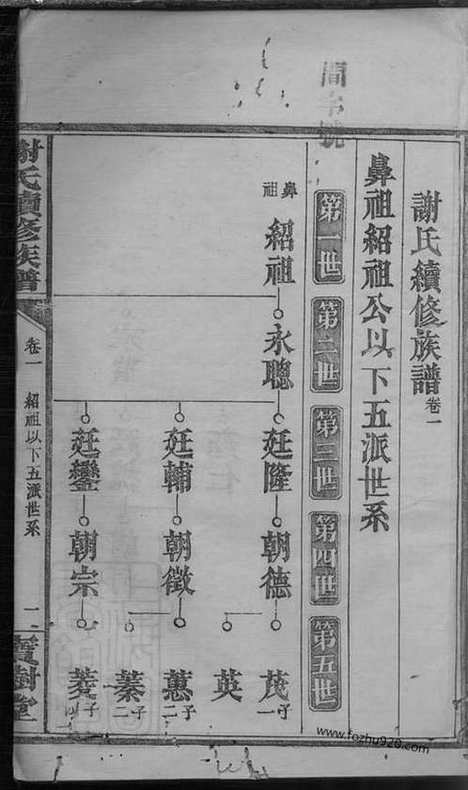 謝氏續修族譜卷一
鼻祖紹祖公以下五派世系
第一世
第二世
第三世
第四世
第五世
鼻祖
紹祖
永聰
廷隆
朝德
茂
子一
英
廷輔
朝徵
蕙
子二
蓁
子二
廷鑾
朝宗
菱
子四
謝氏續修族譜
卷一
紹祖以下五派世系
一
寶樹堂
www.fozhu920.com